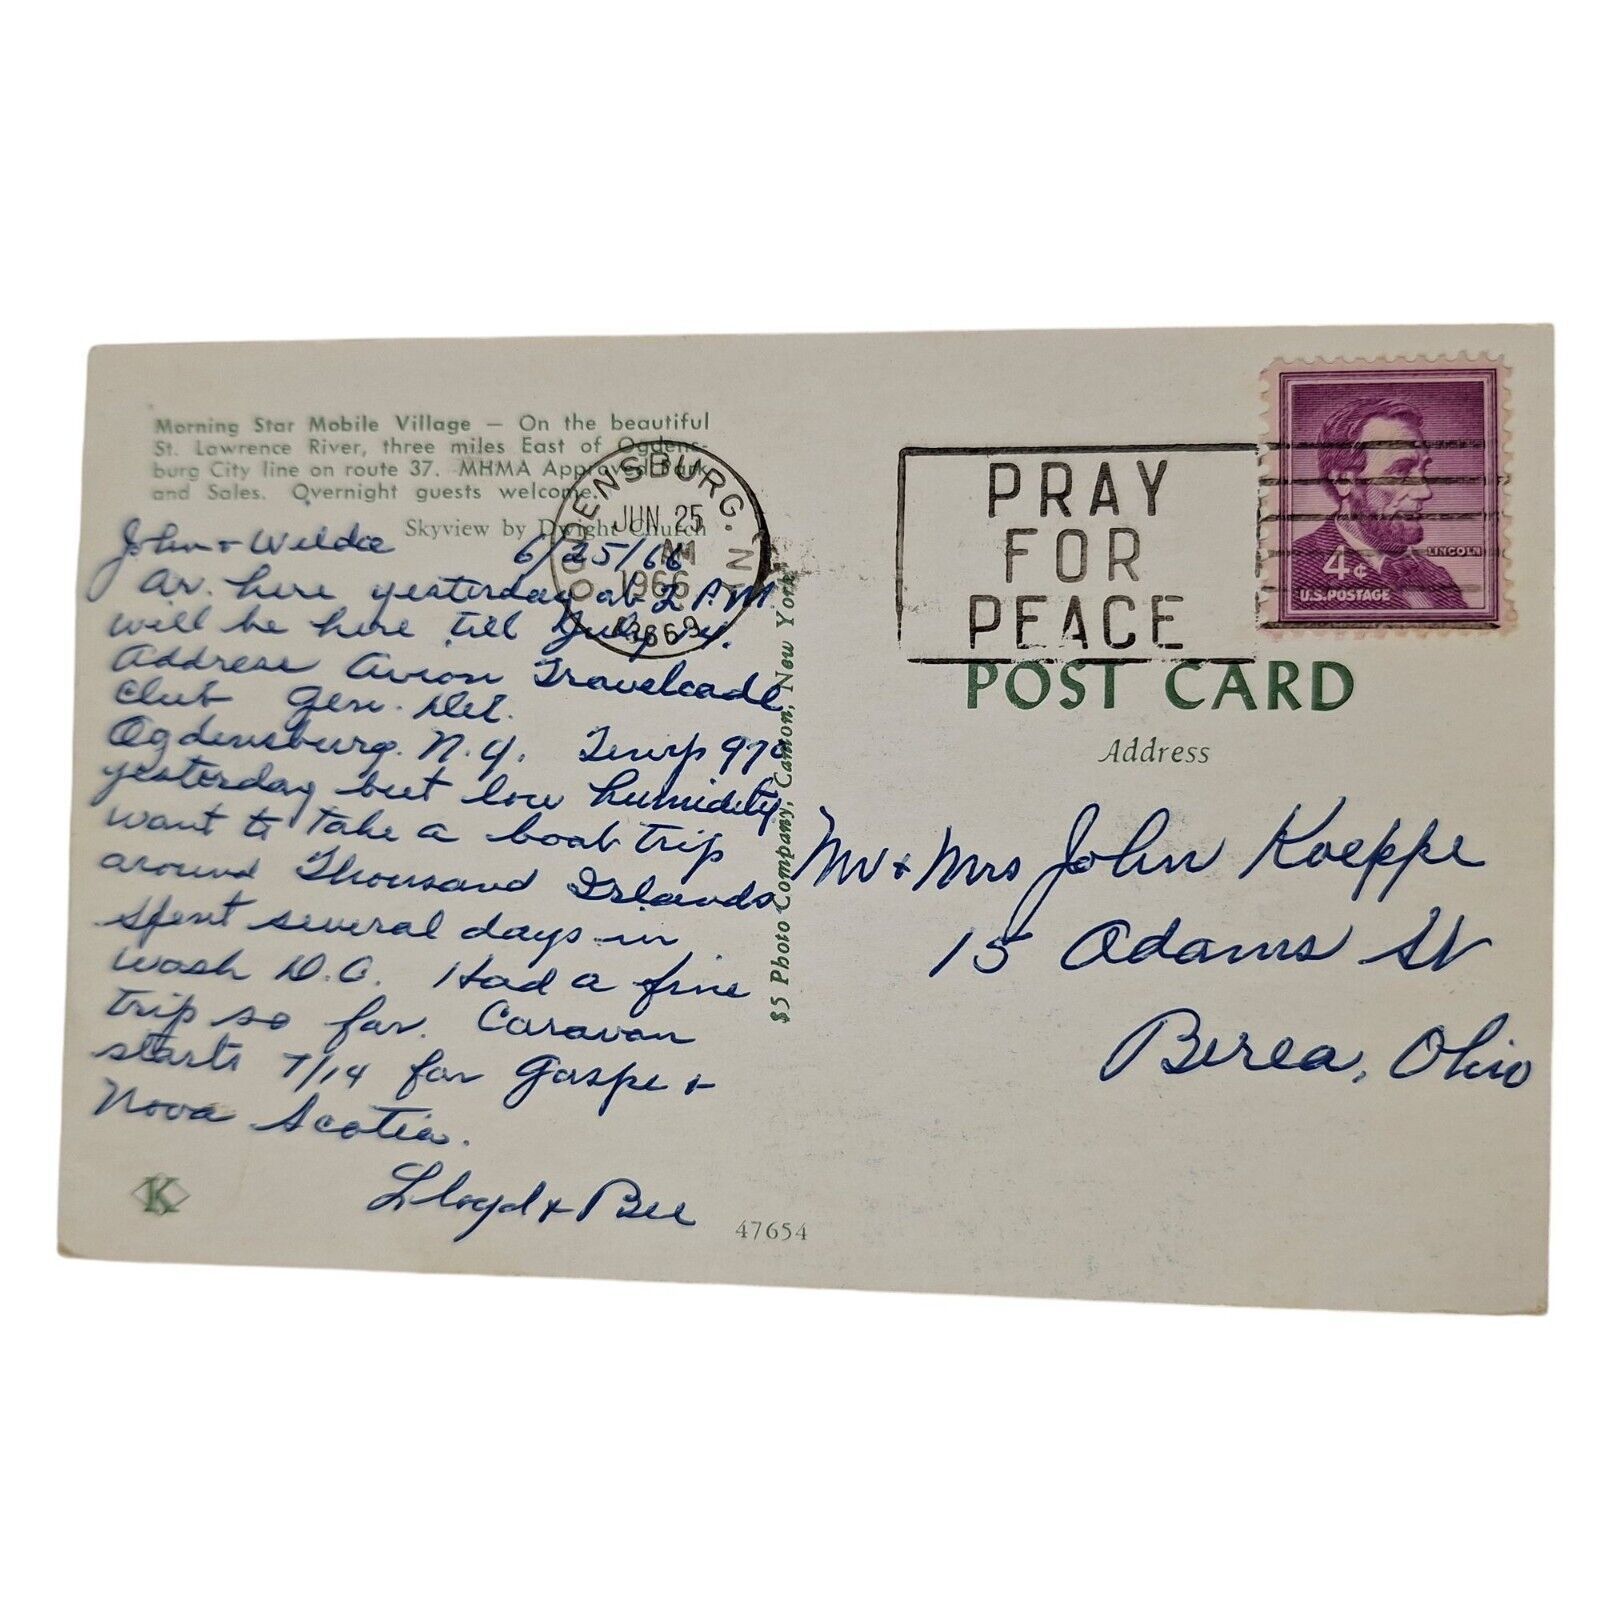 Morning Star Mobile Village — On the beautiful
St. Lawrence River, three miles East of Ogdens-
burg City line on route 37. MHMA Approved Park
and Sales. Overnight guests welcome.
Skyview by Dwight Church
OGDENSBURG. N.Y.
JUN 25
AM
1966
13669
PRAY
FOR
PEACE
LINCOLN
4¢
U.S. POSTAGE
POST CARD
Address
John + Wilda 6/25/66
Ar. here yesterday at 2 P.M
will be here till July 14.
Address Avion Travelcade
Club Gen. Del.
Ogdensburg. N.Y. Temp 97°
yesterday but low humidity
want to take a boat trip
around Thousand Islands
spent several days in
Wash D.C. Had a fine
trip so far. Caravan
starts 7/14 for Gaspe +
Nova Scotia.
Lloyd + Bee
K
47654
$5 Photo Company, Canton, New York
Mr + Mrs John Koeppe
15 Adams St
Berea, Ohio